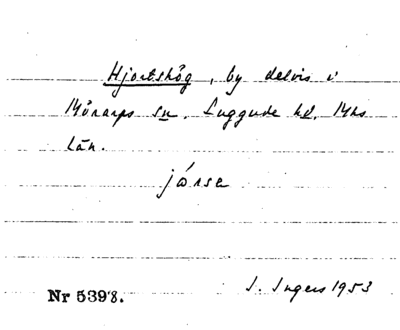 Hjortshög, by delvis i
Mörarps sn. Luggude hd. Mhs
län.
járse
Nr 5398.
I. Ingers 1953